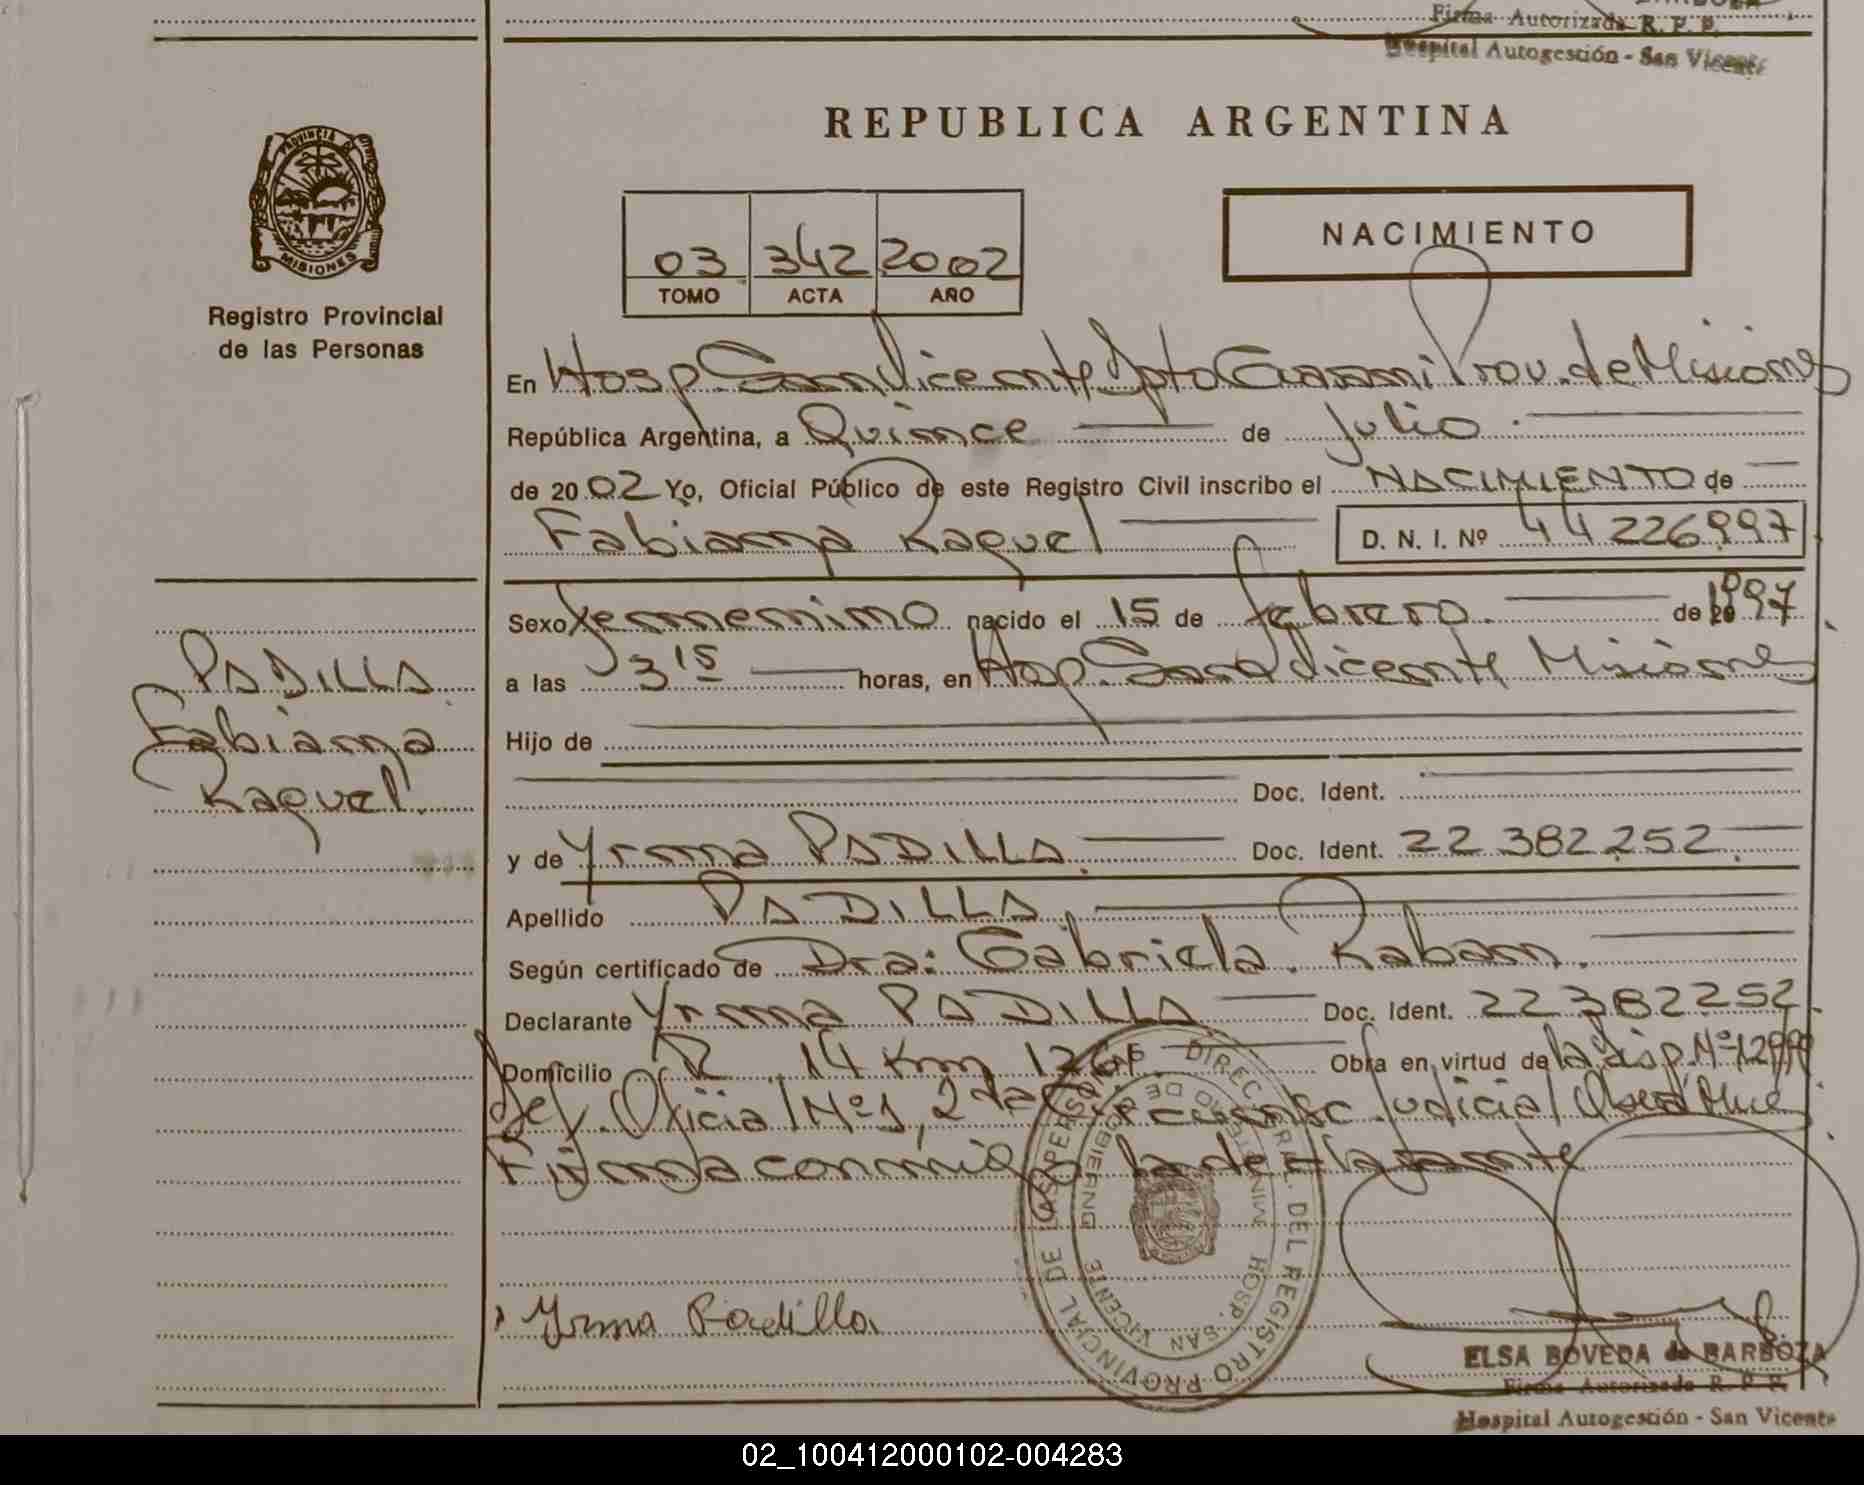 Firma Autorizada R. P. P.
Hospital Autogestión - San Vicente
REPUBLICA ARGENTINA
PROVINCIA DE
MISIONES
Registro Provincial
de las Personas
03 342 2002
TOMO ACTA AÑO
NACIMIENTO
En Hosp. San Vicente Dpto Guarani Prov. de Misiones
República Argentina, a Quince de Julio.
de 2002 Yo, Oficial Público de este Registro Civil inscribo el NACIMIENTO de
Fabiana Raquel D. N. I. Nº 44 226997
Sexo femenino nacido el 15 de febrero. de 1997
a las 3 15 horas, en Hosp. San Vicente Misiones
Hijo de
Doc. Ident.
y de Yrma PADILLA. Doc. Ident. 22 382 252.
Apellido PADILLA
Según certificado de Dra: Gabriela Raban.
Declarante Yrma PADILLA Doc. Ident. 22 382 252.
Domicilio R. 14 Km 1261. Obra en virtud de la Disp. Nº
Def. Oficial Nº 1, 2da Circunsc. Judicial
Firma conmigo la declarante
PADILLA
Fabiana
Raquel.
Yrma Padilla
DIREC RAL DEL REGISTRO PROVINCIAL DE LAS PERSONAS
HOSP. SAN VICENTE
MINISTERIO DE GOBIERNO
ELSA BOVEDA de BARBOZA
Firma Autorizada R. P. P.
Hospital Autogestión - San Vicente
02_100412000102-004283